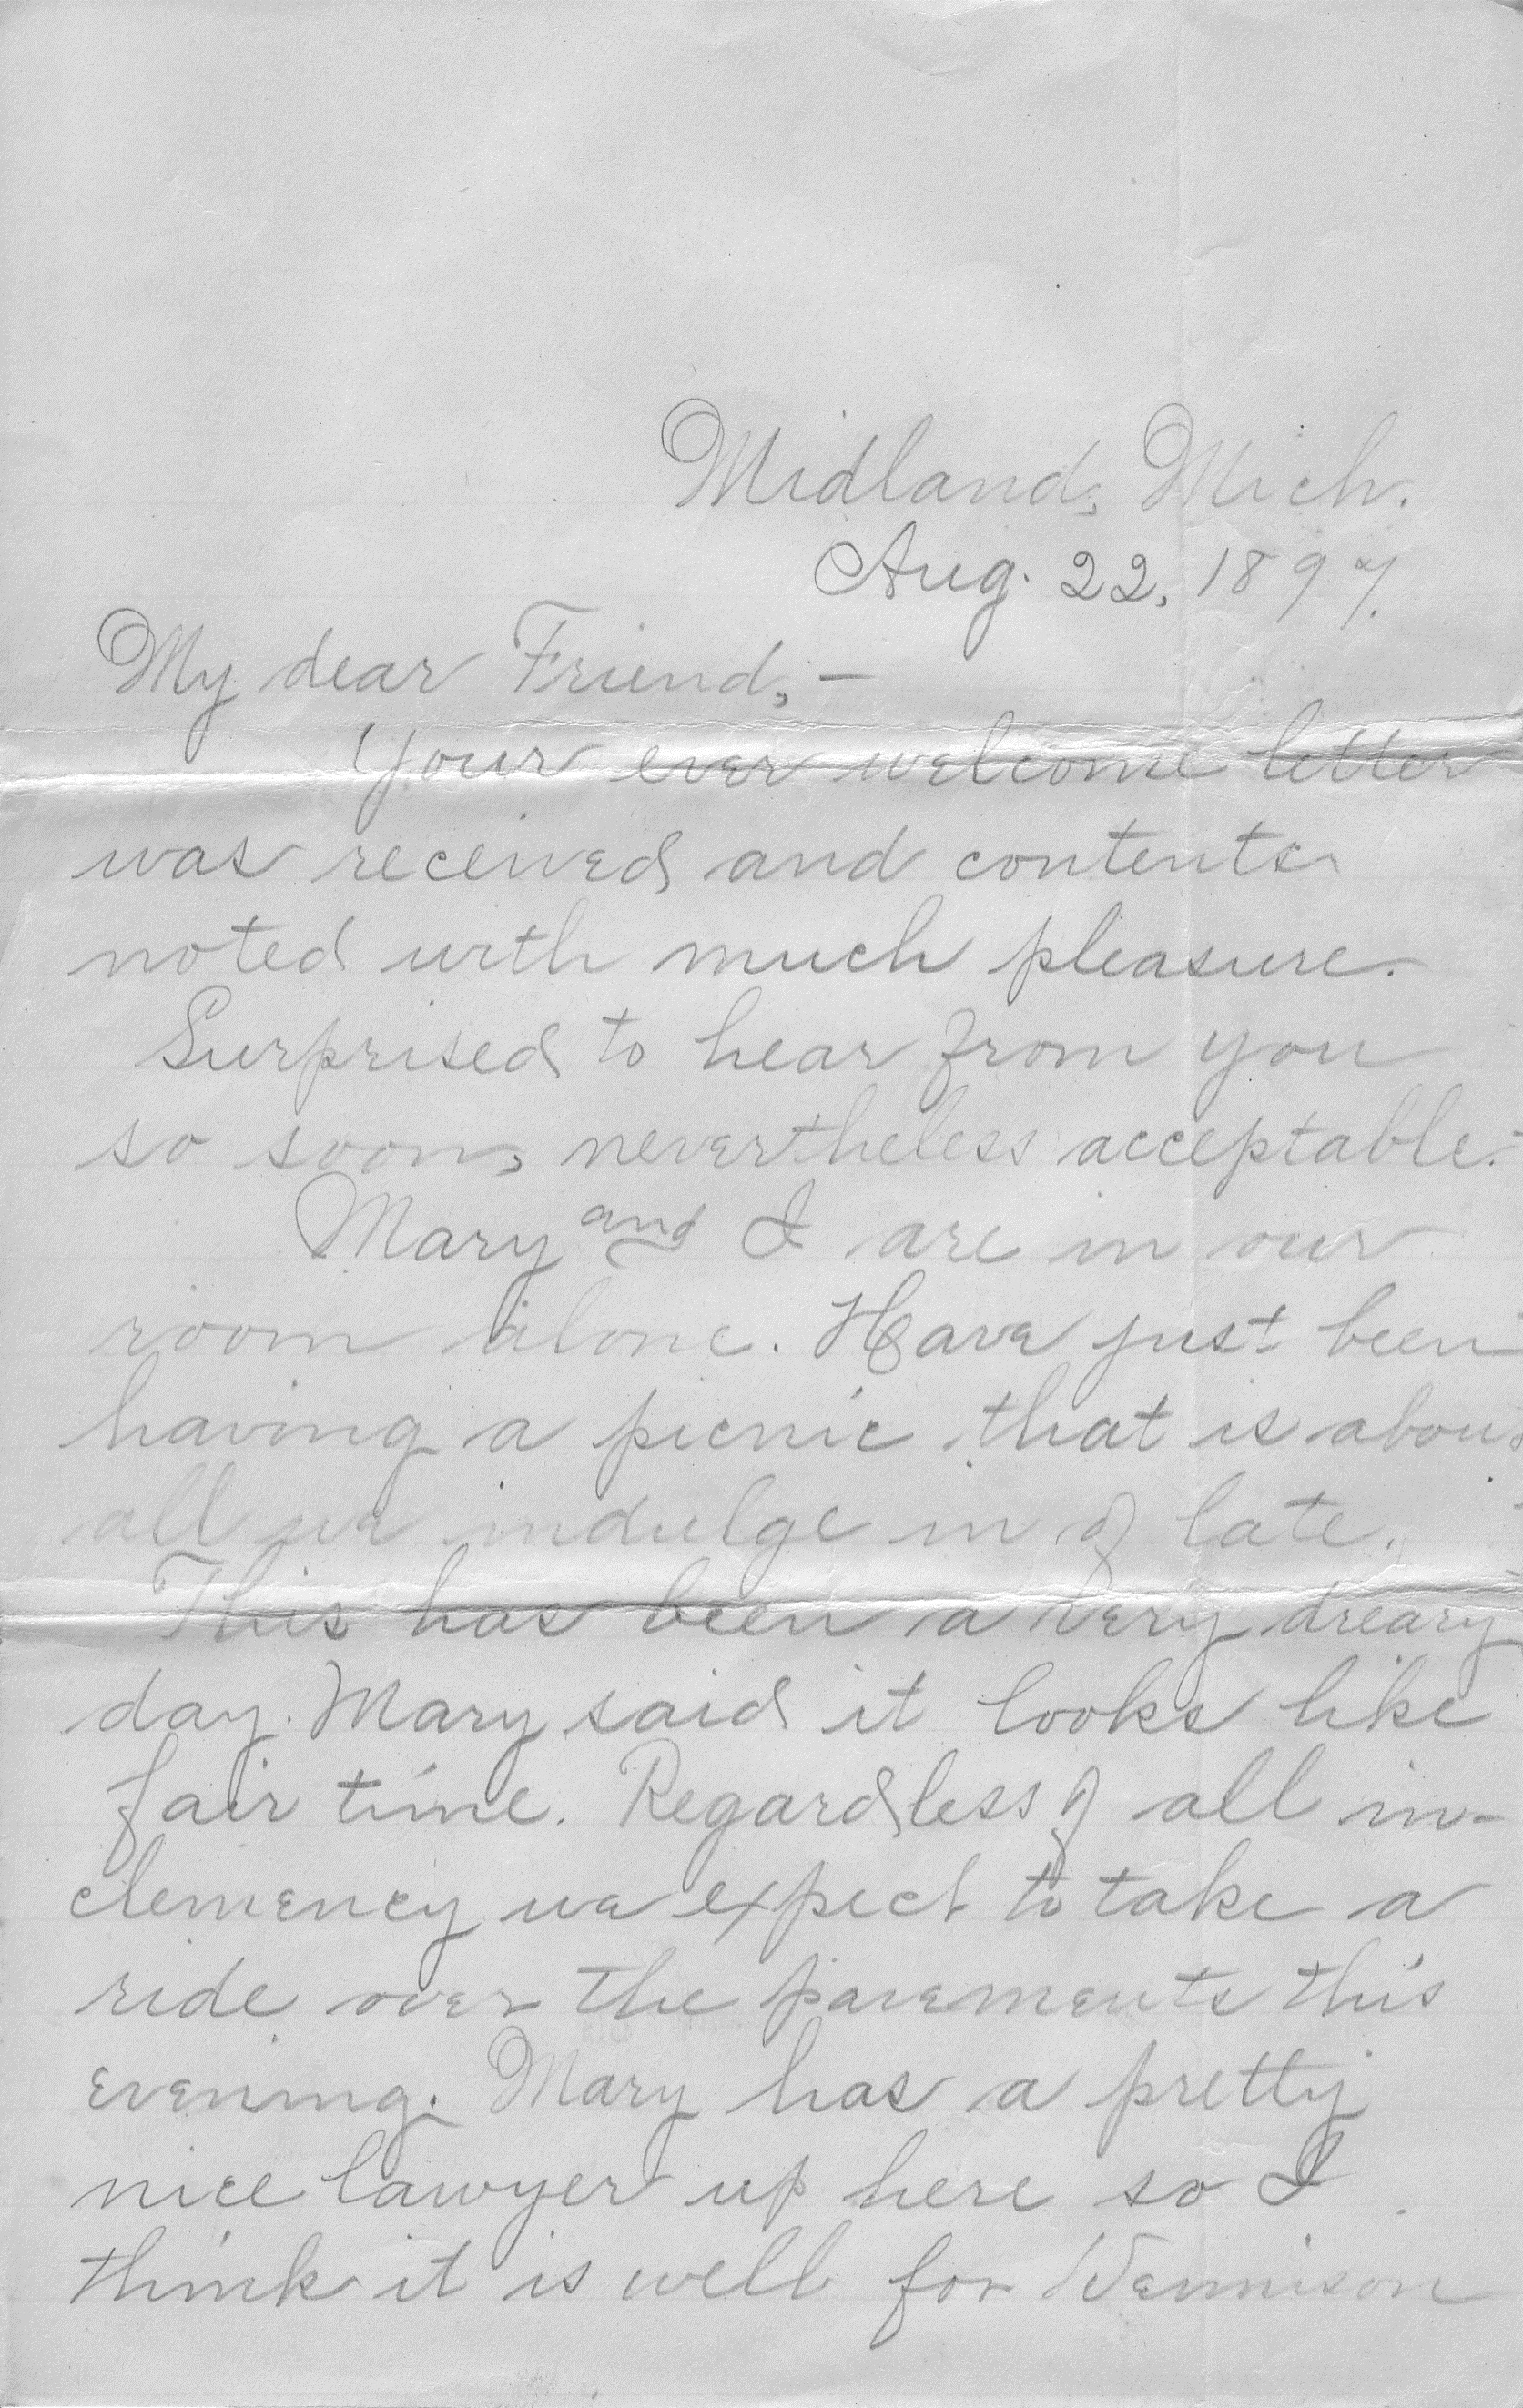 Midland, Mich.
Aug. 22, 1897.
My dear Friend, —
Your ever welcome letter
was received and contents
noted with much pleasure.
Surprised to hear from you
so soon, nevertheless acceptable.
Mary and I are in our
room alone. Have just been
having a picnic that is about
all we indulge in of late.
This has been a very dreary
day. Mary said it looks like
fair time. Regardless of all in-
clemency we expect to take a
ride over the pavements this
evening. Mary has a pretty
nice lawyer up here so I
think it is well for Dennison